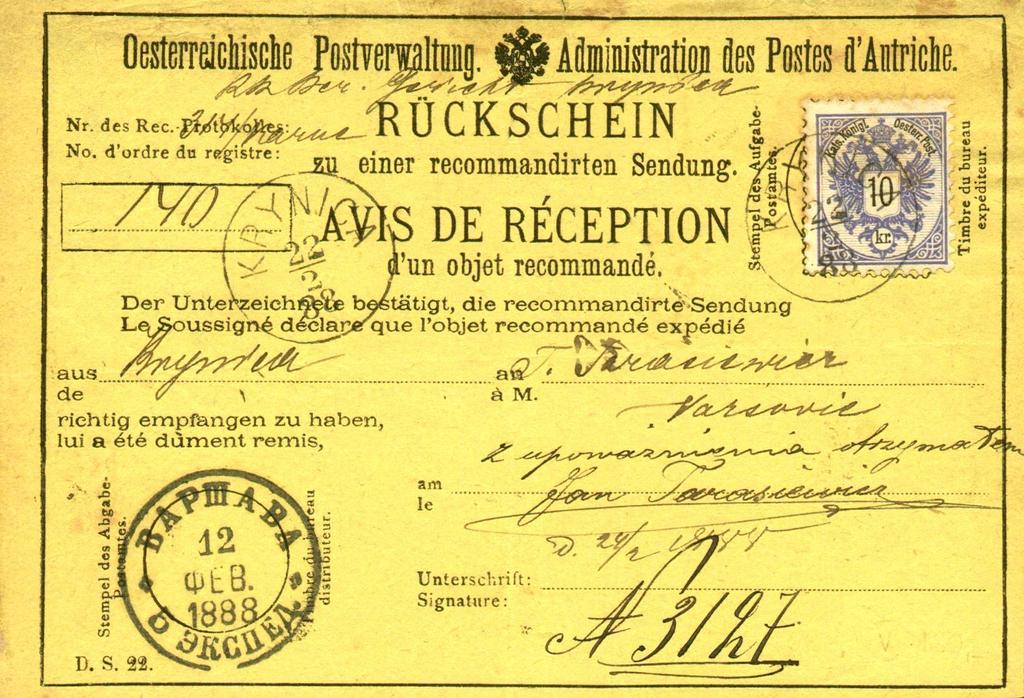 Oesterreichische Postverwaltung. Administration des Postes d'Autriche.
Nr. des Rec.-Protokolles:
No. d'ordre du registre:
140
RÜCKSCHEIN
zu einer recommandirten Sendung.
AVIS DE RÉCEPTION
d'un objet recommandé.
Stempel des Aufgabe-
Postamtes.
Kais. Königl. Oesterr. Post.
10
kr.
Timbre du bureau
expéditeur.
KRYNICA
22
2
88
Der Unterzeichnete bestätigt, die recommandirte Sendung
Le Soussigné déclare que l'objet recommandé expédié
aus Krynica an T. Tarasiewicz
de à M.
Varsovie
richtig empfangen zu haben,
lui a été dûment remis,
z upoważnienia otrzymałem
am Jan Tarasiewicz
le
d. 24/2 1888
Unterschrift:
Signature:
N 3127
Stempel des Abgabe-
Postamtes.
ВАРШАВА
12
ФЕВ.
1888
Б ЭКСПЕД
Timbre du bureau
distributeur.
D. S. 22.